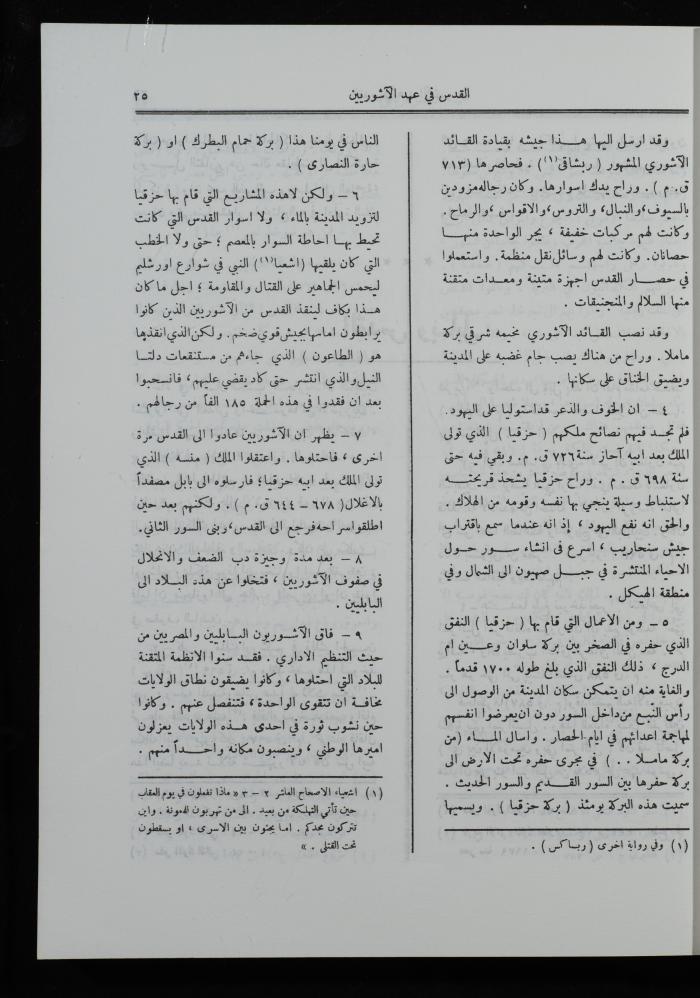 القدس في عهد الآشوريين
٢٥
وقد ارسل اليها هـذا جيشه بقيادة القـائد
الآشوري المشهور ( ربشاقى(١) ) . فحاصرها (٧١٣
ق. م ) . وراح يدك اسوارها. وكان رجاله مزودين
بالسيوف،والنبال، والتروس،والاقواس ،والرماح.
وكانت لهم مركبات خفيفة ، يجر الواحدة منهـا
حصانان. وكانت لهم وسائل نقل منظمة. واستعملوا
في حصـار القدس اجهزة متينة ومعـدات متقنة
منها السلالم والمنجنيقات .
وقد نصب القـائد الآشوري مخيمه شرقي بركة
ماملا . وراح من هناك يصب جام غضبه على المدينة
ويضيق الخناق على سكانها .
٤ - ان الخوف والذعر قد استوليا على اليهود.
فلم تجـد فيهم نصائح ملكهم ( حزقيا ) الذي تولى
الملك بعد ابيه آحاز سنة ٧٢٦ ق. م. وبقي فيه حتى
سنة ٦٩٨ ق . م . وراح حزقيا يشحذ قريحتـه
لاستنباط وسيلة ينجي بها نفسه وقومه من الهلاك .
والحق انه نفع اليهود ، إذ انه عندما سمع باقتراب
جيش سنحاريب ، اسرع في انشاء سـور حـول
الاحياء المنتشرة في جبـل صهيون الى الشمال وفي
منطقة الهيكل .
٥ - ومن الاعمال التي قام بها ( حزقيا ) النفق
الذي حفره في الصخر بين بركة سلوان وعـين ام
الدرج ، ذلك النفق الذي بلغ طوله ١٧٠٠ قدماً .
والغاية منه ان يتمكن سكان المدينة من الوصول الى
رأس النّبع من داخل السور دون ان يعرضوا انفسهم
لمهاجمة اعدائهم في ايام الحصار . واسال المـاء (من
بركة ماملا . . ) في مجرى حفره تحت الارض الى
بركة حفرها بين السور القديم والسور الحديث .
سميت هذه البركة يومئذ ( بركة حزقيا ) . ويسميها
(١) وفي رواية اخرى ( ربـاكس ) .
الناس في يومنا هذا ( بركة حمام البطرك ) او ( بركة
حارة النصارى ) .
٦ - ولكن لاهذه المشاريـع التي قام بها حزقيا
لتزويد المدينة بالماء ، ولا اسوار القدس التي كانت
تحيط بهـا احاطة السوار بالمعصم ؛ حتى ولا الخطب
التي كان يلقيها (اشعيا(١)) النبي في شوارع اورشليم
ليحمس الجماهير على القتال والمقاومة ؛ اجل ما كان
هـذا بكاف لينقذ القدس من الآشوريين الذين كانوا
يرابطون امامها بجيش قوي ضخم. ولكن الذي انقذها
هو ( الطاعون ) الذي جاءهم من مستنقعات دلتـا
النيل والذي انتشر حتى كاد يقضي عليهم، فانسحبوا
بعد ان فقدوا في هذه الحملة ١٨٥ الفاً من رجالهم .
٧ - يظهر ان الآشوريين عادوا الى القدس مرة
اخرى ، فاحتلوها . واعتقلوا الملك ( منسه ) الذي
تولى الملك بعد ابيه حزقيا؛ فارسلوه الى بابل مصفداً
بالاغلال ( ٦٧٨ - ٦٤٤ ق. م ) . ولكنهم بعد حين
اطلقوا سراحه فرجع الى القدس، وبنى السور الثاني.
٨ - بعد مدة وجيزة دب الضعف والانحلال
في صفوف الآشوريين ، فتخلوا عن هذه البـلاد الى
البابليين .
٩ - فاق الآشـوريون البـابليين والمصريين من
حيث التنظيم الاداري . فقـد سنوا الانظمة المتقنة
للبلاد التي احتلوها ، وكانوا يضيقون نطاق الولايات
مخافـة ان تتقوى الواحدة ، فتنفصل عنهم . وكانوا
حين نشوب ثورة في احدى هـذه الولايات يعزلون
اميرها الوطني ، وينصبون مكانه واحـداً منهم .
(١) اشعياء الاصحاح العاشر ٢ - ٣ « ماذا تفعلون في يوم العقاب
حين تأتي التهلكة من بعيد . الى من تهربون للمعونة . واين
تتركون مجدكم . اما يجثون بين الاسرى ، او يسقطون
تحت القتلى . »